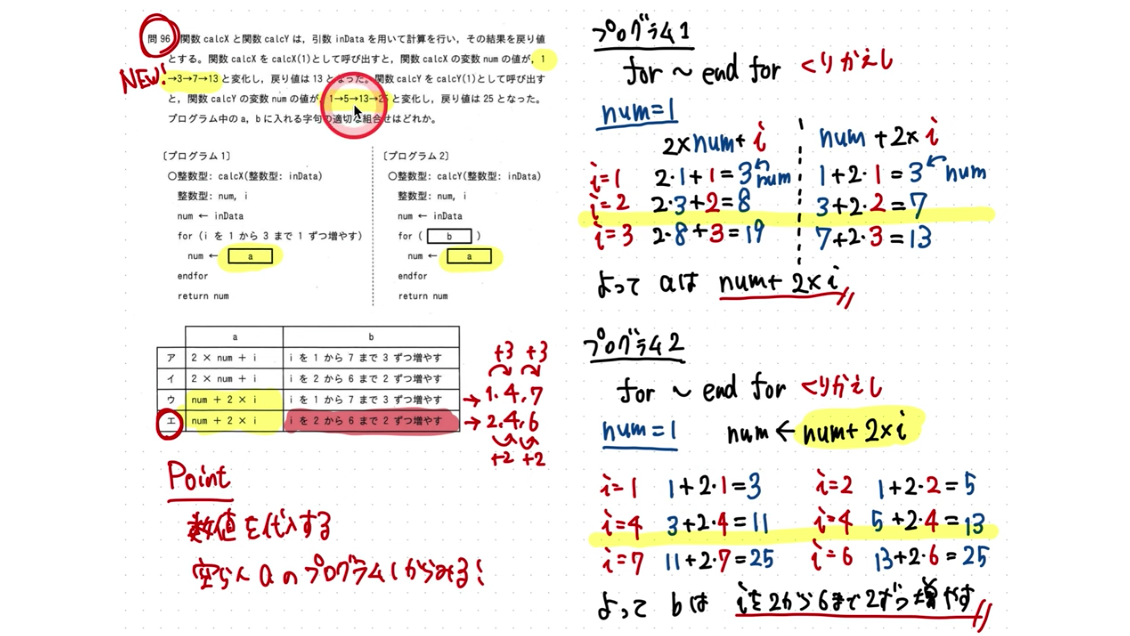 問96 関数 calcX と関数 calcY は、引数 inData を用いて計算を行い、その結果を戻り値
とする。関数 calcX を calcX(1)として呼び出すと、関数 calcX の変数 num の値が、1
→3→7→13 と変化し、戻り値は 13 となった。関数 calcY を calcY(1)として呼び出す
と、関数 calcY の変数 num の値が、1→5→13→25 と変化し、戻り値は 25 となった。
プログラム中の a, b に入れる字句の適切な組合せはどれか。
NEW!
〔プログラム1〕
○整数型: calcX(整数型: inData)
整数型: num, i
num ← inData
for (i を 1 から 3 まで 1 ずつ増やす)
num ← a
endfor
return num
〔プログラム2〕
○整数型: calcY(整数型: inData)
整数型: num, i
num ← inData
for ( b )
num ← a
endfor
return num
a b
ア 2 × num + i i を 1 から 7 まで 3 ずつ増やす
イ 2 × num + i i を 2 から 6 まで 2 ずつ増やす
ウ num + 2 × i i を 1 から 7 まで 3 ずつ増やす
エ num + 2 × i i を 2 から 6 まで 2 ずつ増やす
+3 +3
→ 1.4.7
→ 2.4.6
+2 +2
Point
数値を代入する
空らんaのプログラム1からみる!
プログラム1
for ~ end for くりかえし
num=1
2×num+i num+2×i
i=1 2・1+1=3 num 1+2・1=3 num
i=2 2・3+2=8 3+2・2=7
i=3 2・8+3=19 7+2・3=13
よって aは num+2×i
プログラム2
for ~ end for くりかえし
num=1 num ← num+2×i
i=1 1+2・1=3 i=2 1+2・2=5
i=4 3+2・4=11 i=4 5+2・4=13
i=7 11+2・7=25 i=6 13+2・6=25
よって bは iを2から6まで2ずつ増やす